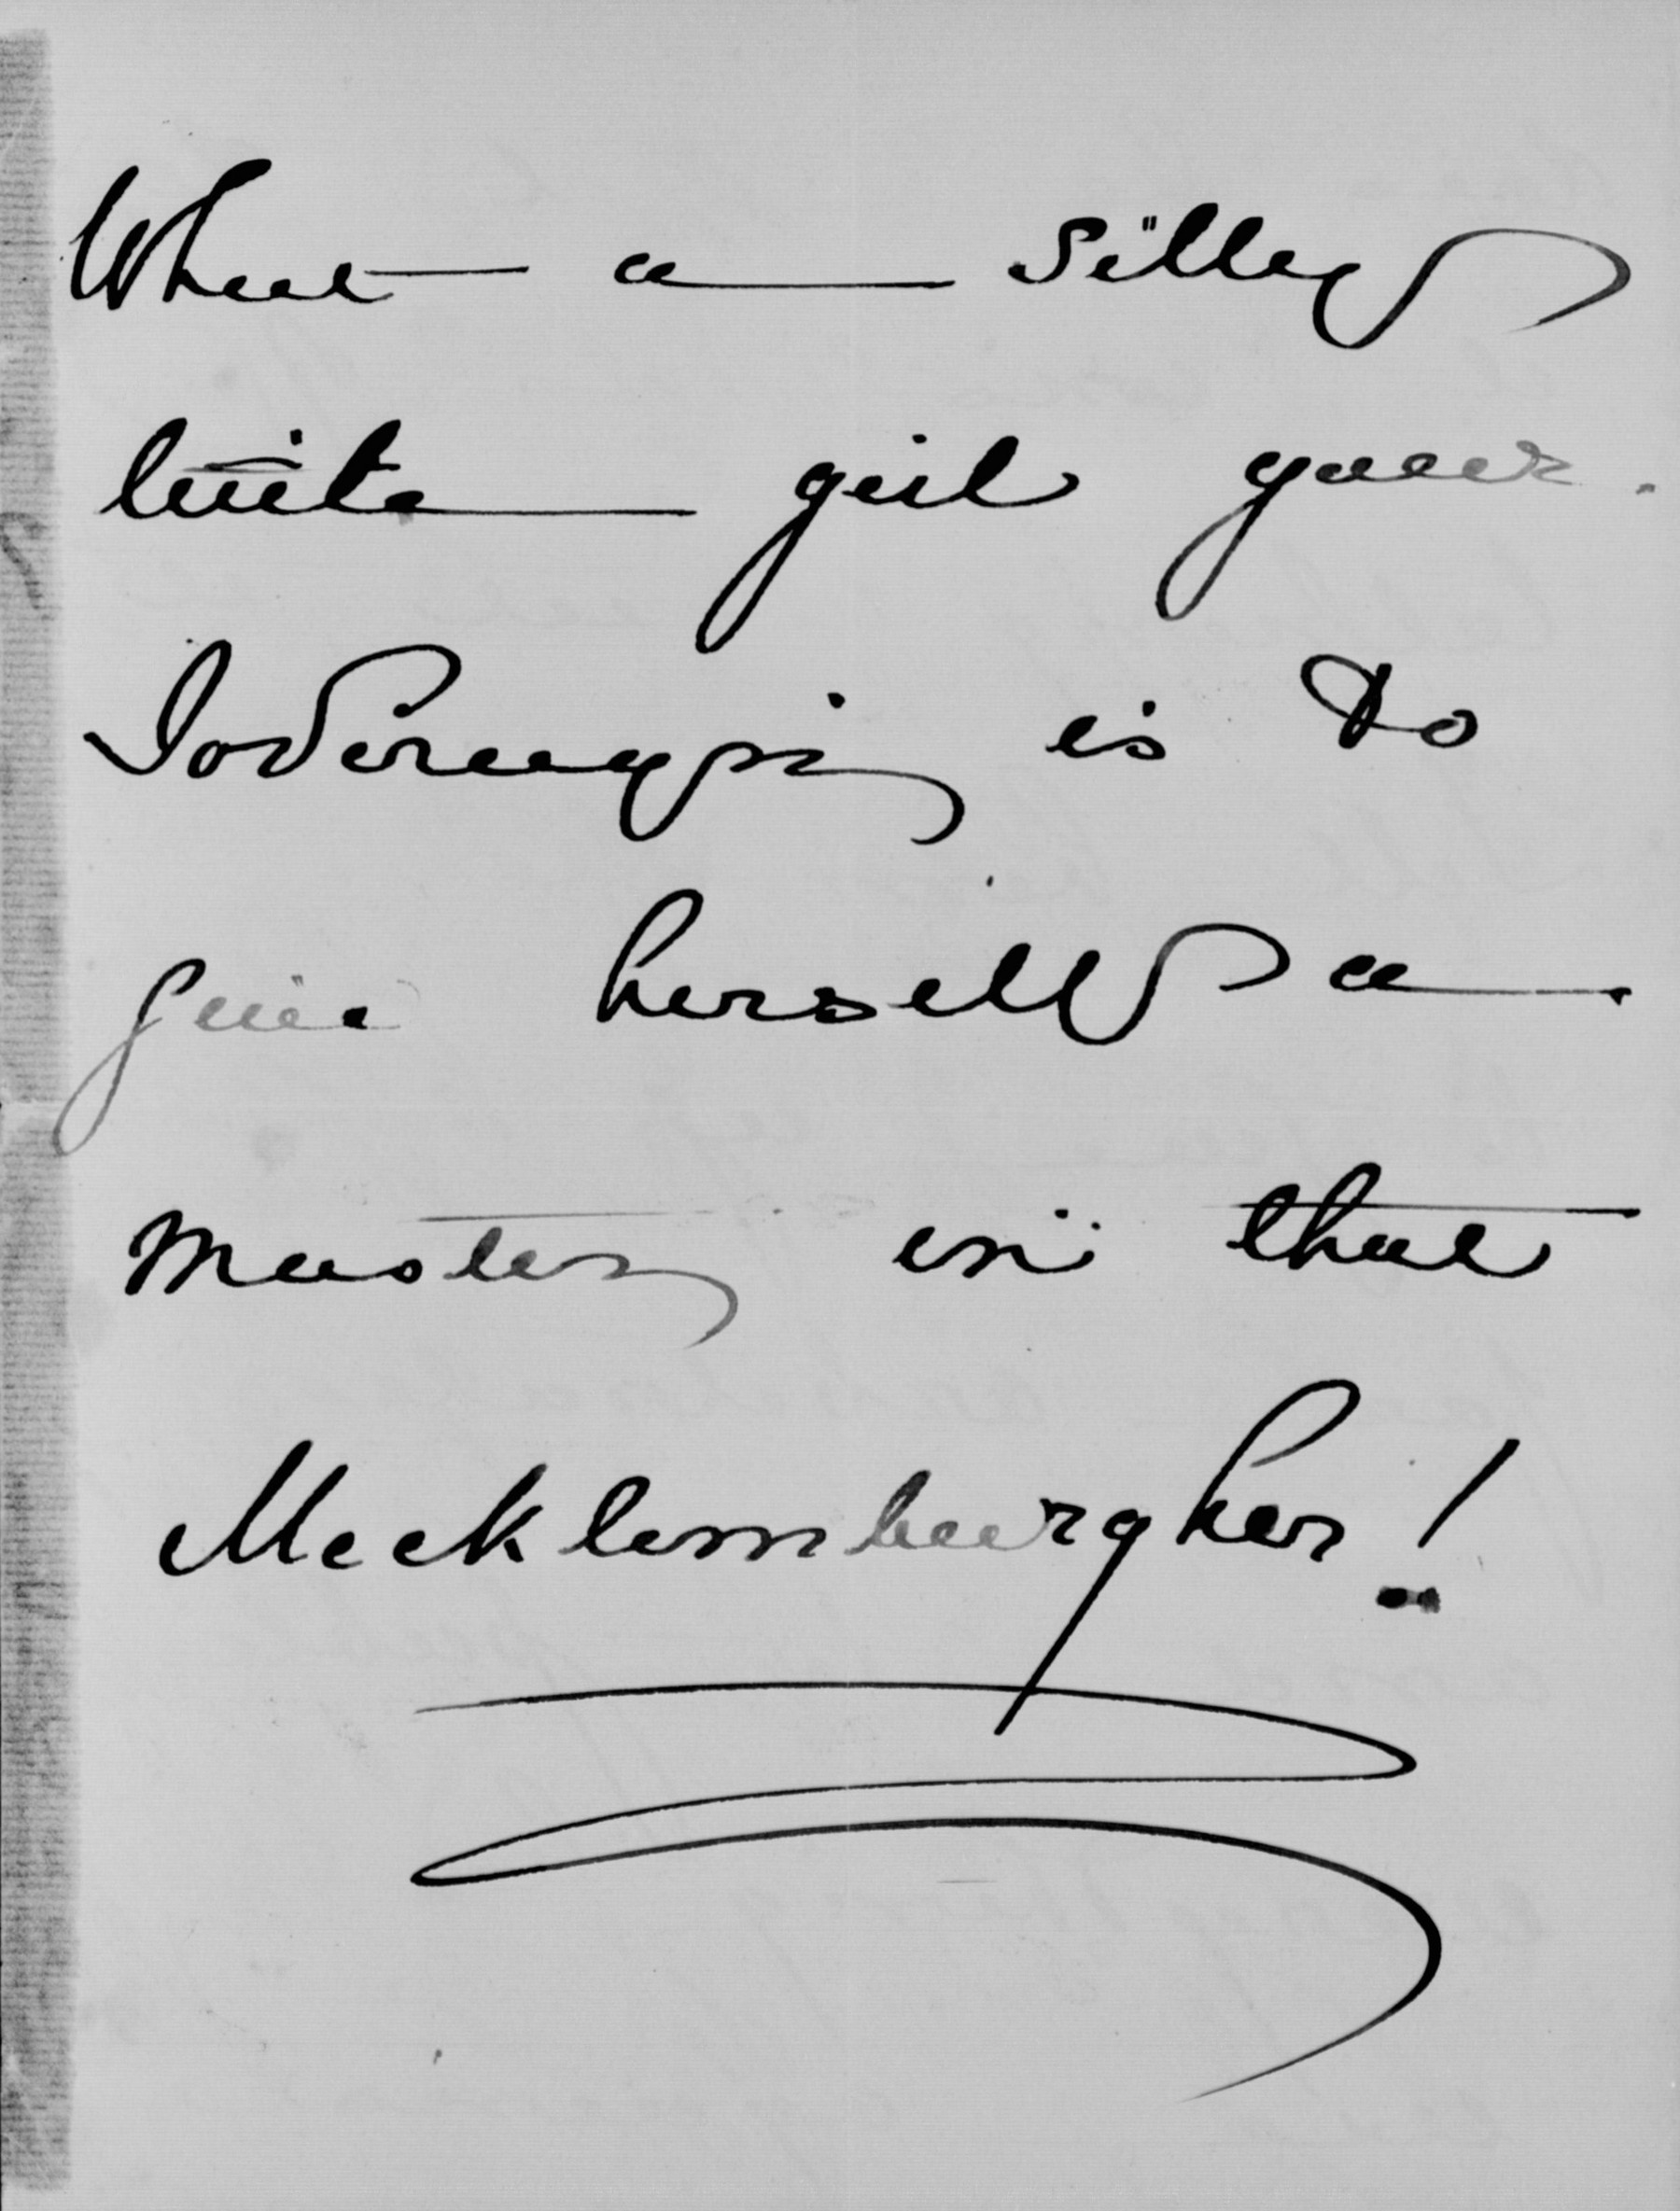 What a silly
little girl your
Sovereign is to
give herself a
Master in that
Mecklemburgher!